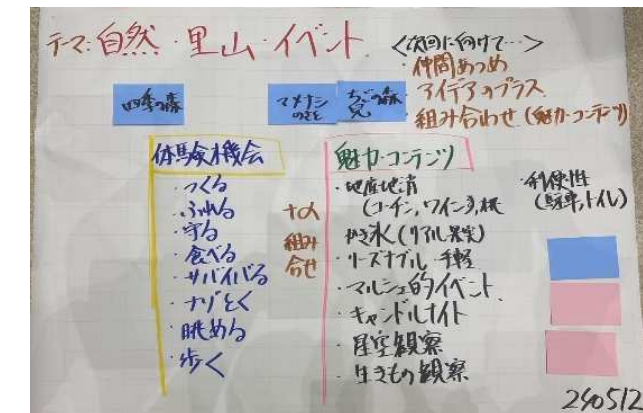 テーマ:自然・里山・イベント
<次回に向けて…>
・仲間あつめ
・アイデアのプラス
・組み合わせ(魅力・コンテンツ)
四季の森
マメナシのさと
児の森
体験機会
・つくる
・ふれる
・守る
・食べる
・サバイバる
・ナゾとく
・眺める
・歩く
組み合せ
魅力・コンテンツ
・地産地消
(コーチン,ワイン
かき氷(リアル果実)
・リーズナブル 手軽
・マルシェ的イベント
・キャンドルナイト
・星空観察
・生きもの観察
・利便性
(駐車,トイレ)
240512